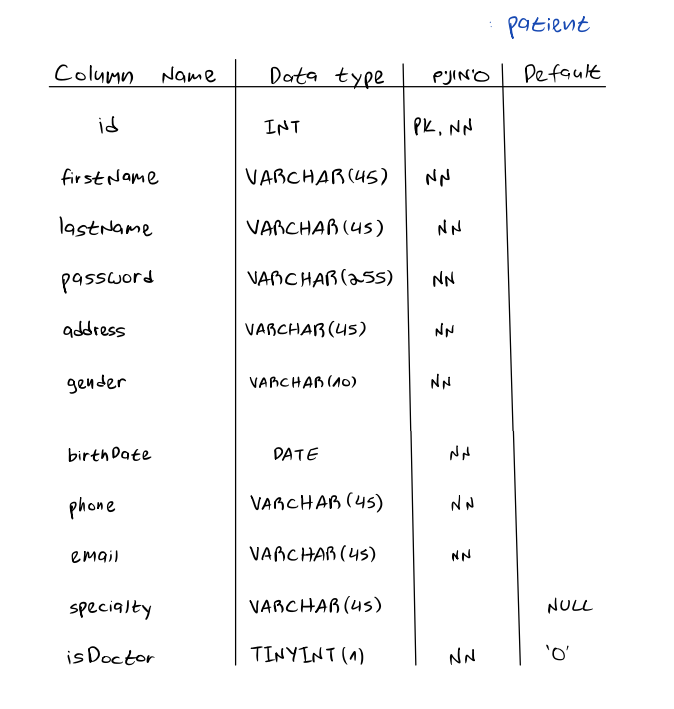 patient :
Column Name Data type סימונים Default
id INT PK, NN
firstName VARCHAR(45) NN
lastName VARCHAR(45) NN
password VARCHAR(255) NN
address VARCHAR(45) NN
gender VARCHAR(10) NN
birthDate DATE NN
phone VARCHAR(45) NN
email VARCHAR(45) NN
specialty VARCHAR(45) NULL
isDoctor TINYINT(1) NN '0'